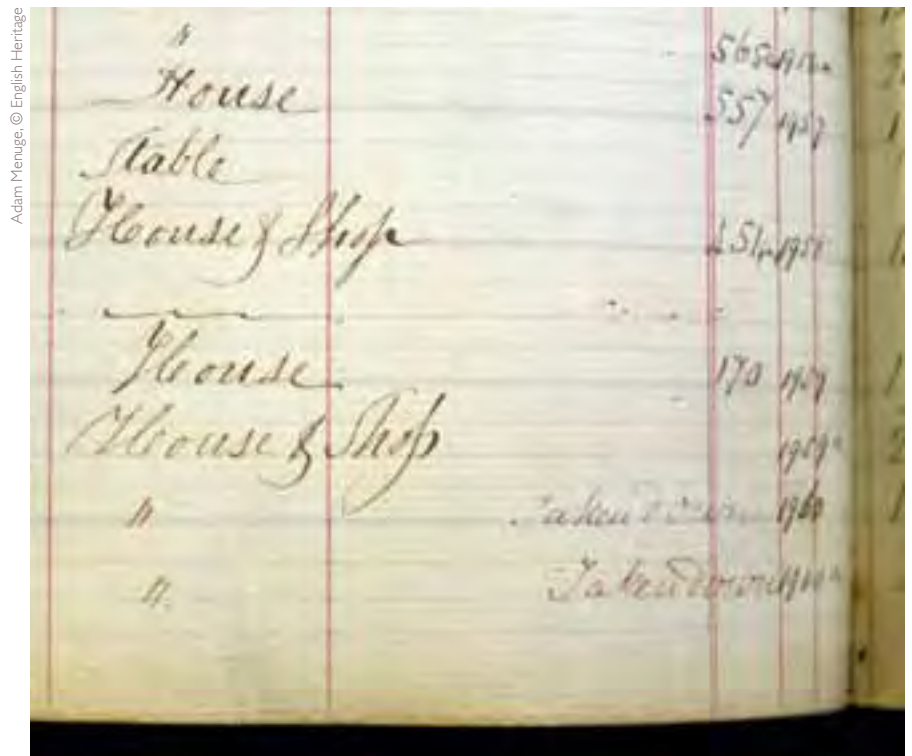 Adam Menuge, © English Heritage
"
House 557 1957
Stable
House & Shop 1958
House 170 1959
House & Shop 1959a
" Taken down 1960
" Taken down 1960a